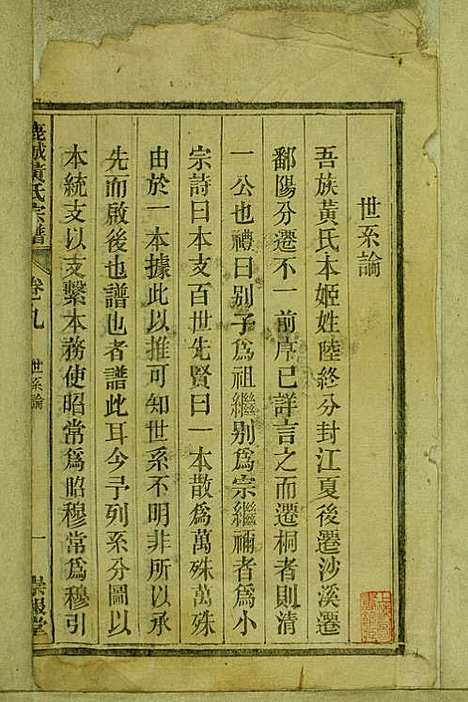 世系論
吾族黃氏本姬姓陸終分封江夏後遷沙溪遷
鄱陽分遷不一前序已詳言之而遷桐者則清
一公也禮曰别子爲祖繼别爲宗繼禰者爲小
宗詩曰本支百世先賢曰一本散爲萬殊萬殊
由於一本據此以推可知世系不明非所以承
先而啟後也譜也者譜此耳今予列系分圖以
本統支以支繫本務使昭常爲昭穆常爲穆引
城黃氏宗譜
卷九
世系論
一
報堂